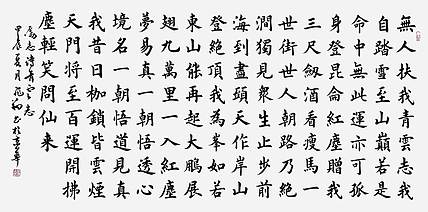 無人扶我青雲志我
自踏雪至山巔若是
命中無此運亦可孤
身登昆侖紅塵贈我
三尺劍酒看瘦馬一
世街世人朝路乃絕
澗獨見眾生止步
海到盡頭天作岸山
登絕頂我為峰如若
東山能再起大鵬展
翅九萬里一入紅塵
夢易真一朝悟透心
境名一朝悟道見真
我昔日枷鎖皆雲煙
天門將至百運開拂
塵輕笑問仙來
勵志詩青雲志
甲辰夏月書於京華